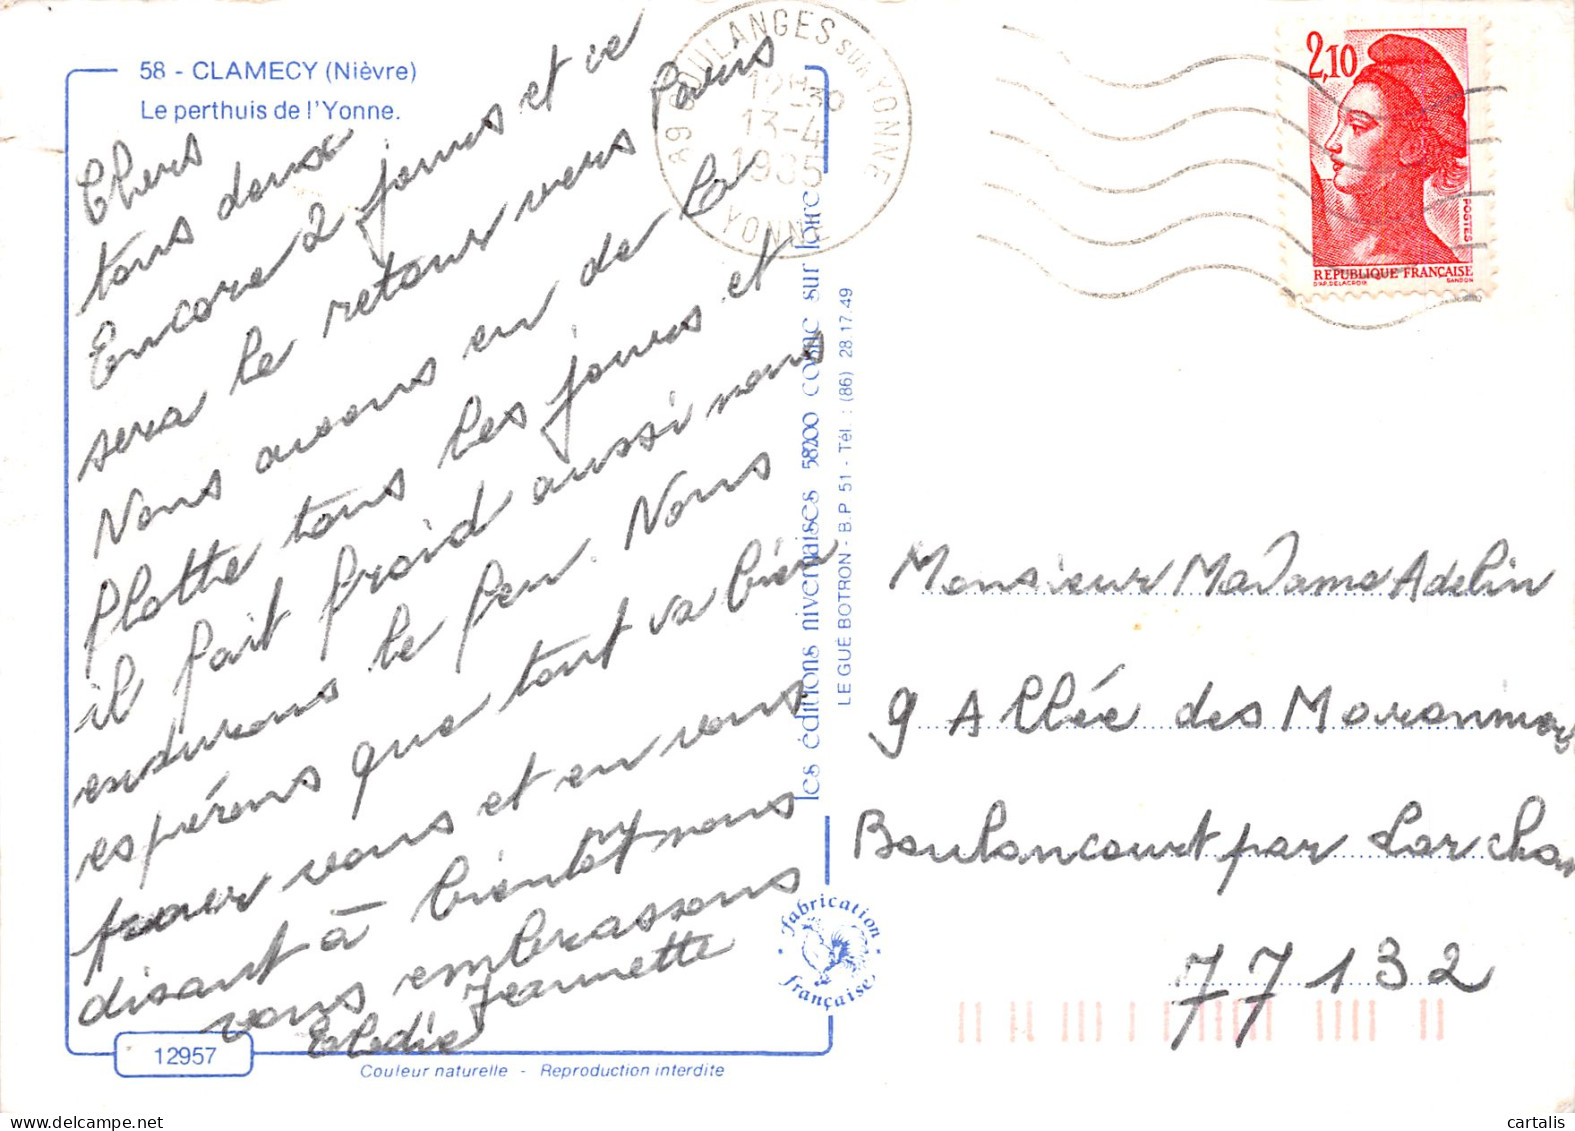 58 - CLAMECY (Nièvre)
Le perthuis de l'Yonne.
Chers
tous deux
Encore 2 jours et ce
sera le retour vers Paris
Nous avons eu de la
flotte tous les jours et
il fait froid aussi nous
endurons le feu. Nous
espérons que tout va bien
pour vous et en vous
disant à bientôt nous
vous embrassons
Jeannette
12957
Couleur naturelle - Reproduction interdite
les éditions nivernaises 58200 cosne sur loire
LE GUÉ BOTRON - B.P 51 - Tél. : (86) 28 17.49
fabrication
française
89 COULANGES SUR YONNE
12H30
13-4
1985
YONNE
2,10
POSTES
REPUBLIQUE FRANÇAISE
D'AP. DELACROIX GANDON
Monsieur Madame Adelin
9 Allée des
Boulancourt par Larcha
77132
cartalis